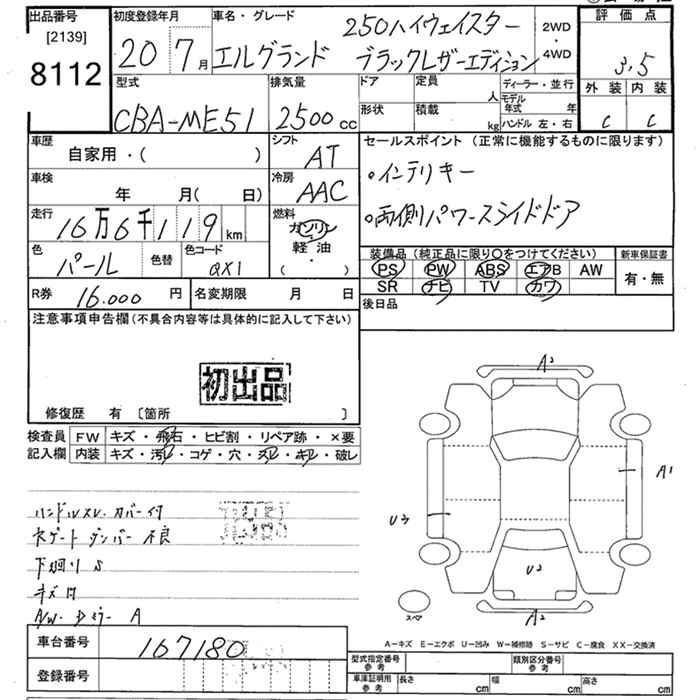 出品番号 初度登録年月 車名・グレード 250ハイウェイスター 2WD 評価点
[2139] 20 7月 エルグランド ブラックレザーエディション ・ 4WD 3.5
8112 型式 排気量 ドア 定員 人 ディーラー・並行 外装 内装
CBA-ME51 2500cc 形状 積載 kg モデル年式 年 ハンドル 左・右 C C
車歴 自家用・( ) シフト AT セールスポイント(正常に機能するものに限ります)
車検 年 月( 日) 冷房 AAC ・インテリキー
走行 16万6千119km 燃料 ガソリン ・両側パワースライドドア
色 パール 色替 色コード QX1 軽油 ( ・ ) 装備品(純正品に限り○をつけてください) 新車保証書
PS PW ABS エアB AW 有・無
R券 16.000円 名変期限 月 日 SR ナビ TV カワ
注意事項申告欄(不具合内容等は具体的に記入して下さい) 後日品
初出品
修復歴 有 [箇所 ]
検査員 FW キズ・飛石・ヒビ割・リペア跡・×要
記入欄 内装 キズ・汚レ・コゲ・穴・スレ・キレ・破レ
A2
A1
U3
U2
A2
スペア
ハンドルスレ カバー付
バックゲートダンパー不良
下廻りS
キズ凹
A/W・Dミラー A
車台番号 167180
登録番号
A−キズ E−エクボ U−凹み W−補修跡 S−サビ C−腐食 XX−交換済
型式指定番号 参考 類別区分番号 参考
車庫証明用 参考 長さ cm 幅 cm 高さ cm